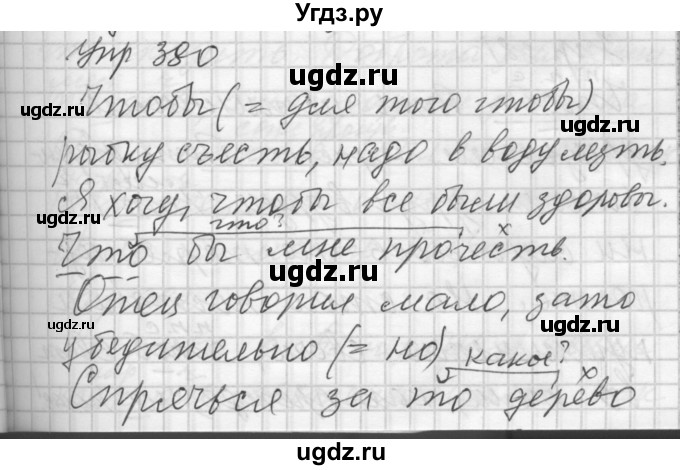 Угдз.ру
Упр 380
Чтобы (= для того чтобы)
рыбку съесть, надо в воду лезть.
Я хочу, чтобы все были здоровы.
что?
х
Что бы мне прочесть.
Отец говорил мало, зато
убедительно (= но)
какое?
х
Спрячься за то дерево
ugdz.ru
ugdz.ru
ugdz.ru
ugdz.ru
ugdz.ru
ugdz.ru
ugdz.ru
ugdz.ru
ugdz.ru
ugdz.ru
ugdz.ru
ugdz.ru